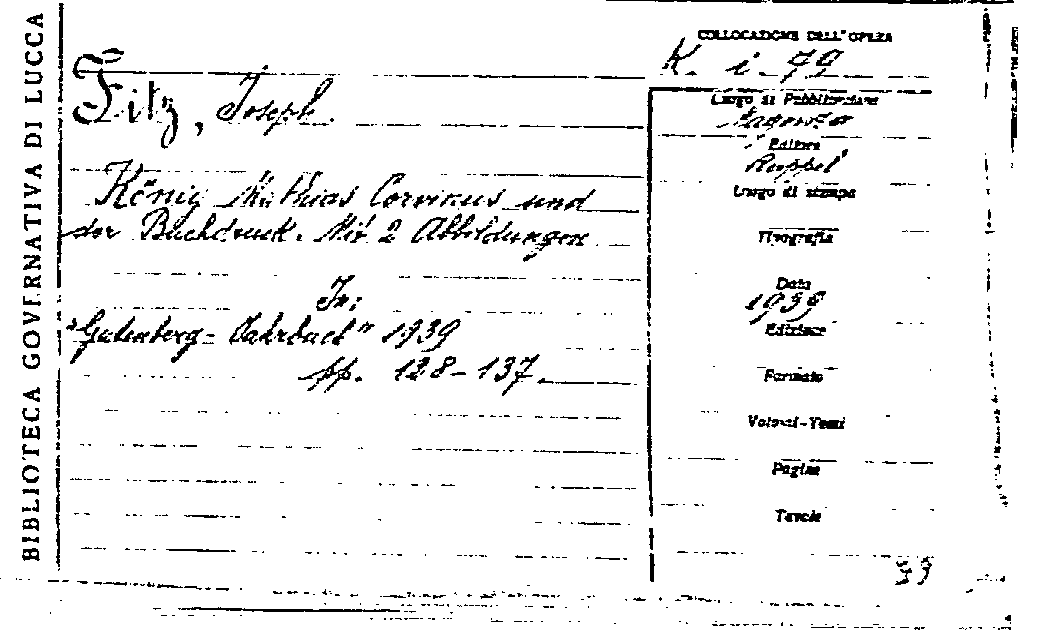 BIBLIOTECA GOVERNATIVA DI LUCCA
COLLOCAZIONE DELL'OPERA
K. i. 79
Fitz, Joseph.
König Mathias Corvinus und
der Buchdruck. Mit 2 Abbildungen
In:
"Gutenberg-Jahrbuch" 1939
pp. 128-137.
Luogo di Pubblicazione
Magonza
Editore
Ruppel
Luogo di stampa
Tipografia
Data
1939
Edizione
Formato
Volumi-Tomi
Pagine
Tavole